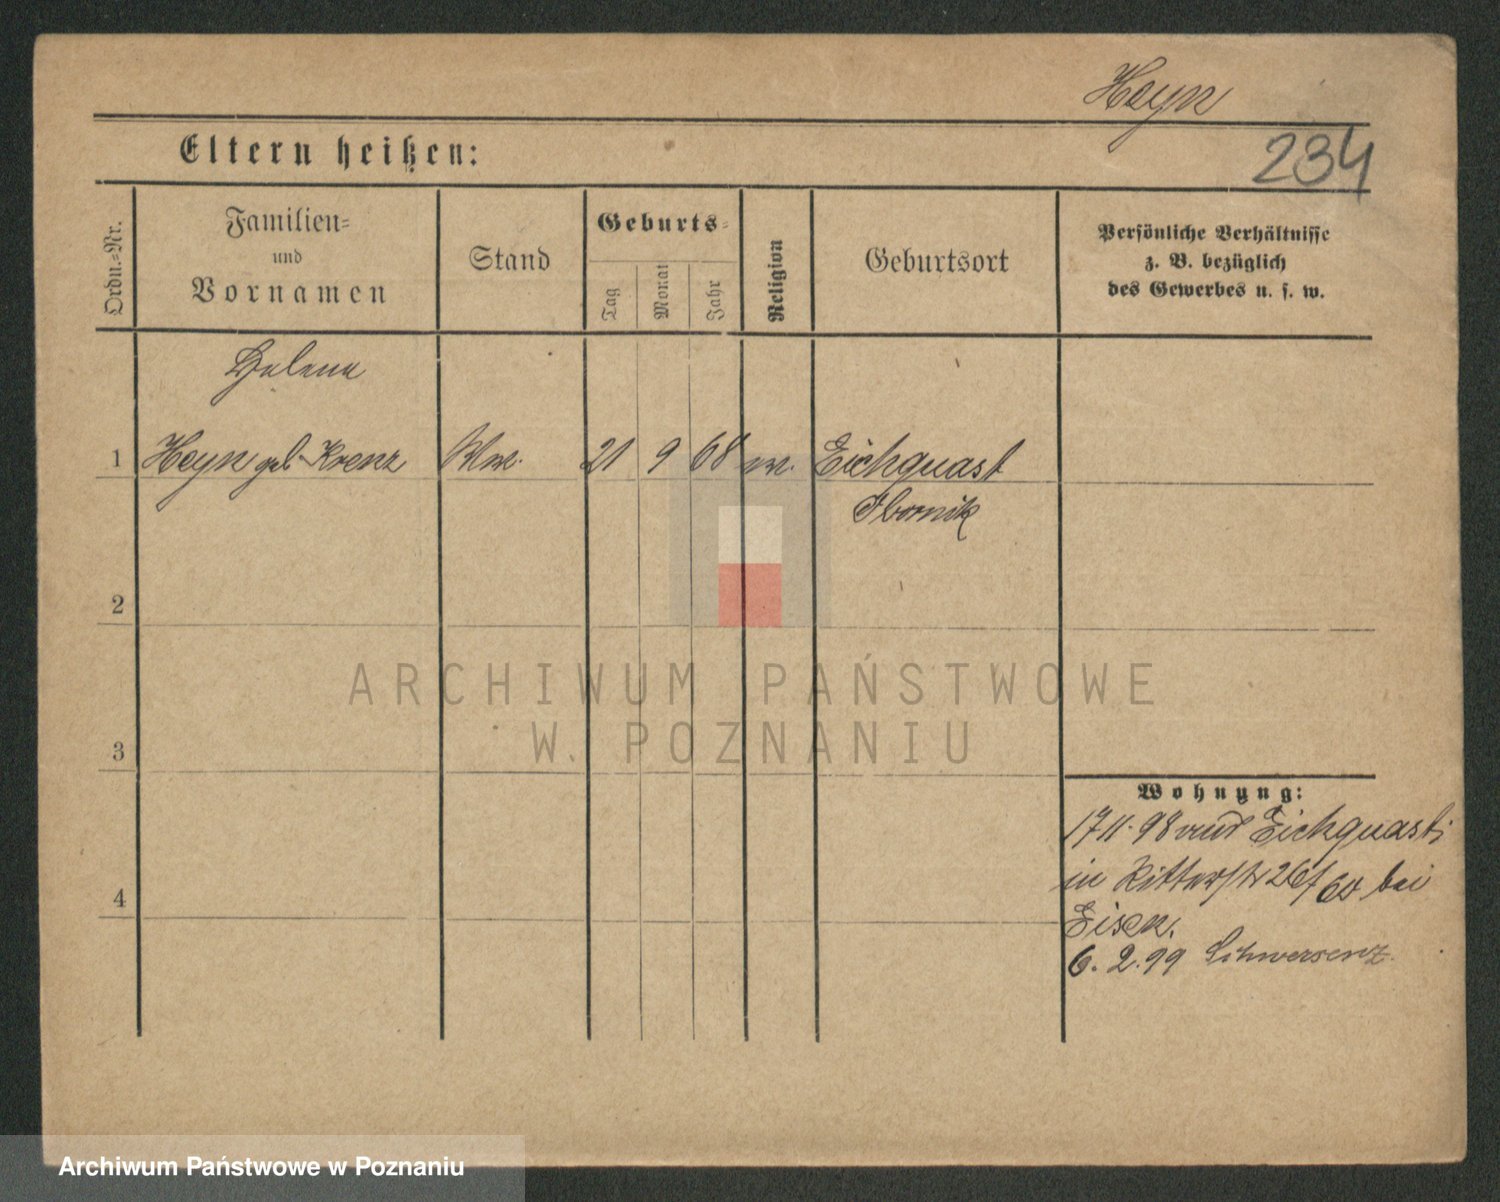 Heyn
234
Eltern heißen:
Ordn.=Nr.
Familien=
und
Vornamen
Stand
Geburts=
Tag
Monat
Jahr
Religion
Geburtsort
Persönliche Verhältnisse
z. B. bezüglich
des Gewerbes u. s. w.
Helene
1 Heyn geb. Krenz Wwe. 21 9 68 ev. Eichquast
Obornik
2
3
4
Wohnung:
17 11. 98 aus Eichquast
in Ritterstr 26 bei
Eisen.
6. 2. 99 Schwersenz.
ARCHIWUM PAŃSTWOWE
W. POZNANIU
Archiwum Państwowe w Poznaniu